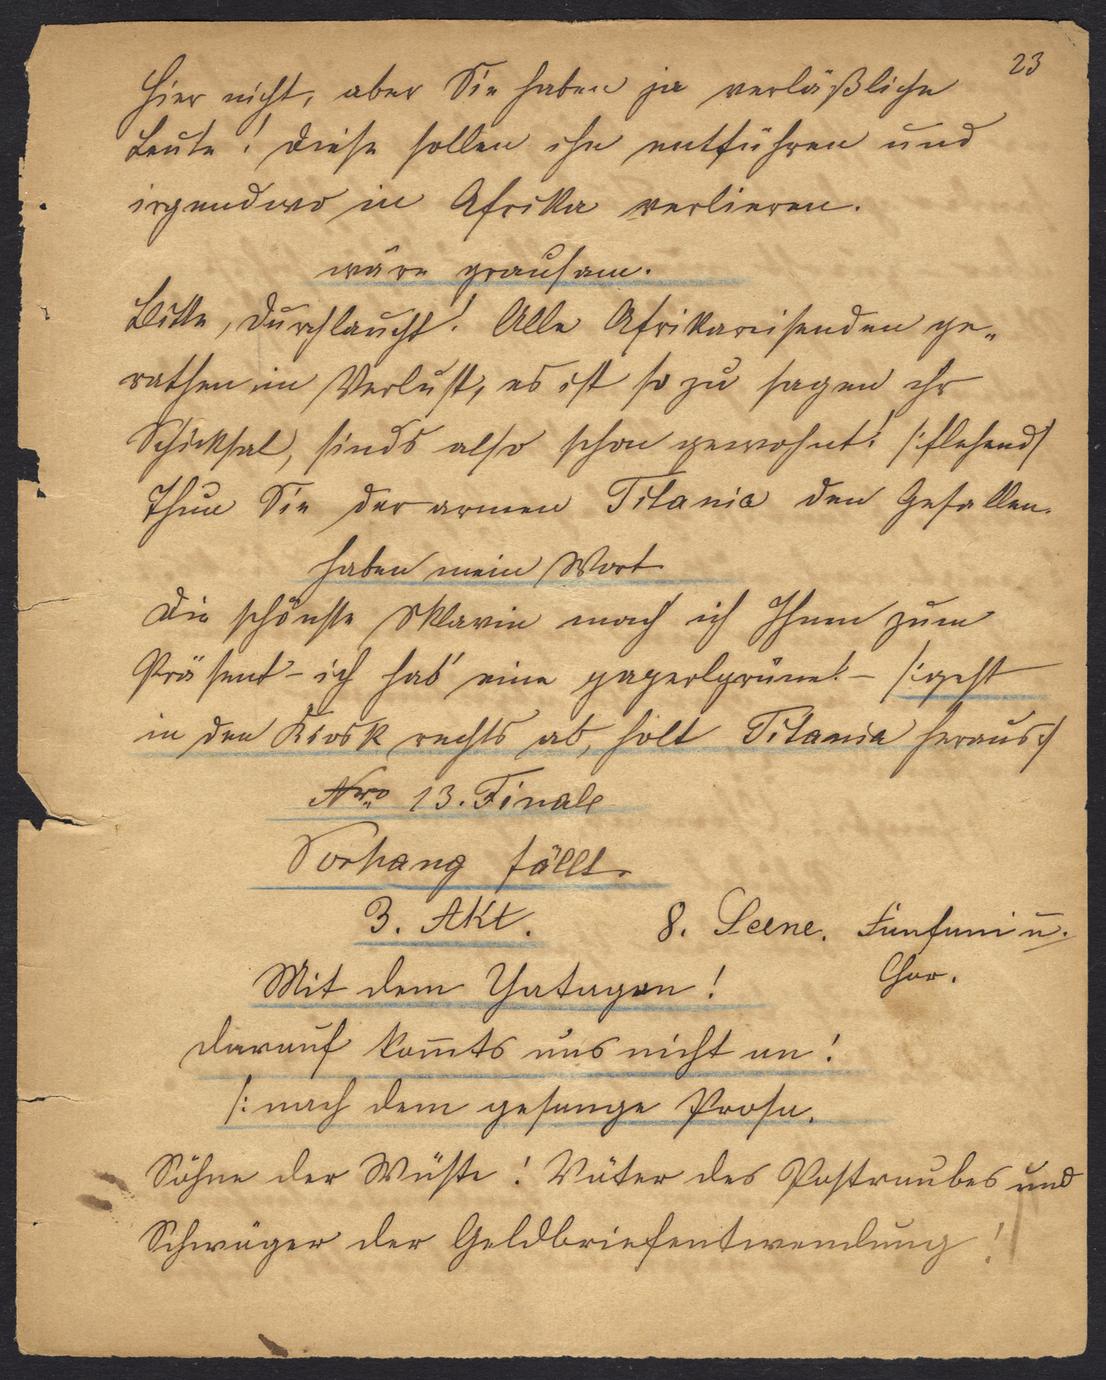 23
Hier nicht, aber Sie haben ja verläßliche
Leute! Diese sollen ihn entführen und
irgendwo in Afrika verlieren.
wäre grausam.
Bitte, Durchlaucht! Alle Afrikareisenden ge-
rathen in Verlust, es ist so zu sagen ihr
Schicksal, sinds also schon gewohnt! /:flehend/
Thun Sie der armen Titania den Gefallen.
haben mein Wort
Die schönste Sklavin mach ich Ihnen zum
Präsent - ich hab' eine gagerlgrüne! - /:geht
in den Kiosk rechts ab, holt Titania heraus:/
Nro 13. Finale
Vorhang fällt.
3. Akt. 8. Scene. Funfuni u.
Chor.
Mit dem Yatagan!
darauf kom̅ts uns nicht an!
/: nach dem gesange Prosa.
Söhne der Wüste! Väter des Postraubes und
Schwäger der Geldbriefentwendung!